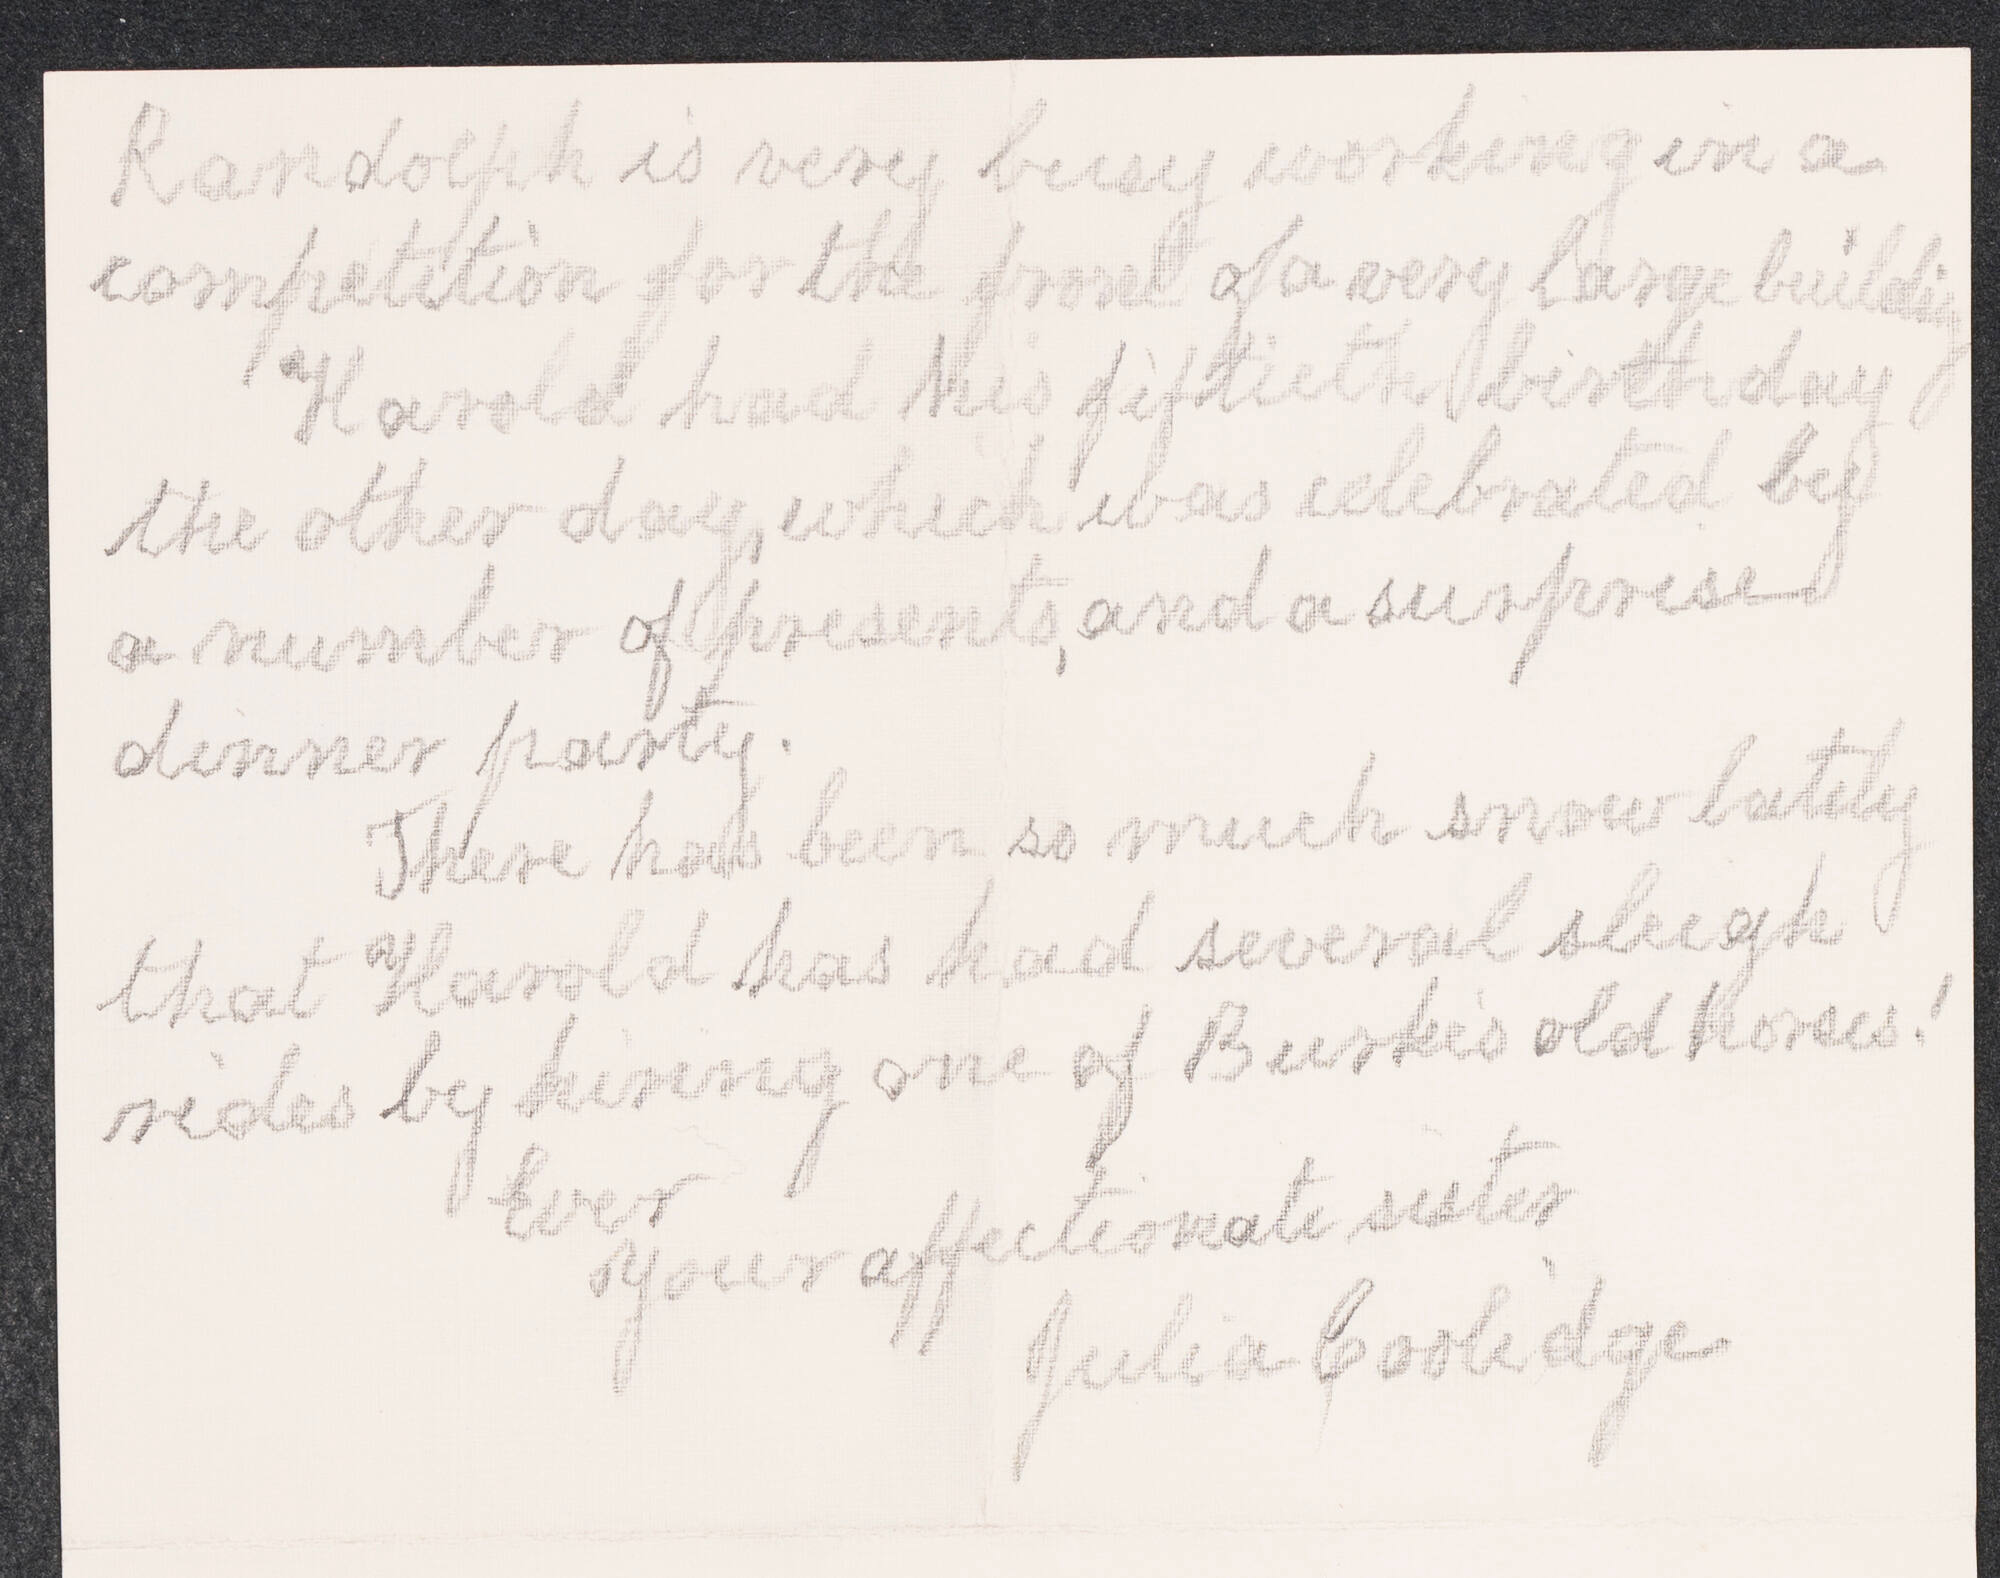 Randolph is very busy working in a
competition for the front of a very large building
Harold had his fiftieth birthday
the other day, which was celebrated by
a number of presents, and a surprise
dinner party.
There has been so much snow lately
that Harold has had several sleigh
rides by hiring one of Burke's old horses!
Ever
Your affectionate sister
Julia Coolidge